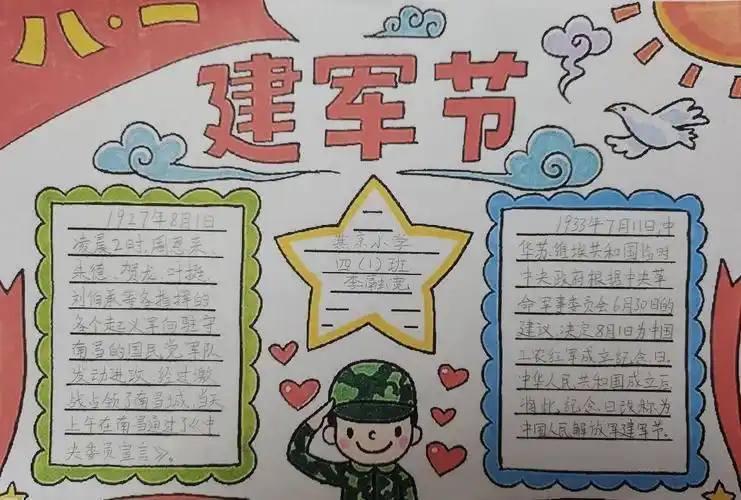 八·一
建军节
1927年8月1日
凌晨2时,周恩来、
朱德、贺龙、叶挺、
刘伯承等各指挥的
各个起义军向驻守
南昌的国民党军队
发动进攻,经过激
战占领了南昌城,当天
上午在南昌通过了《中
央委员宣言》。
燕京小学
四(1)班
李
1933年7月11日,中
华苏维埃共和国临时
中央政府根据中央革
命军事委员会6月30日的
建议,决定8月1日为中国
工农红军成立纪念日。
中华人民共和国成立后
将此纪念日改称为
中国人民解放军建军节。